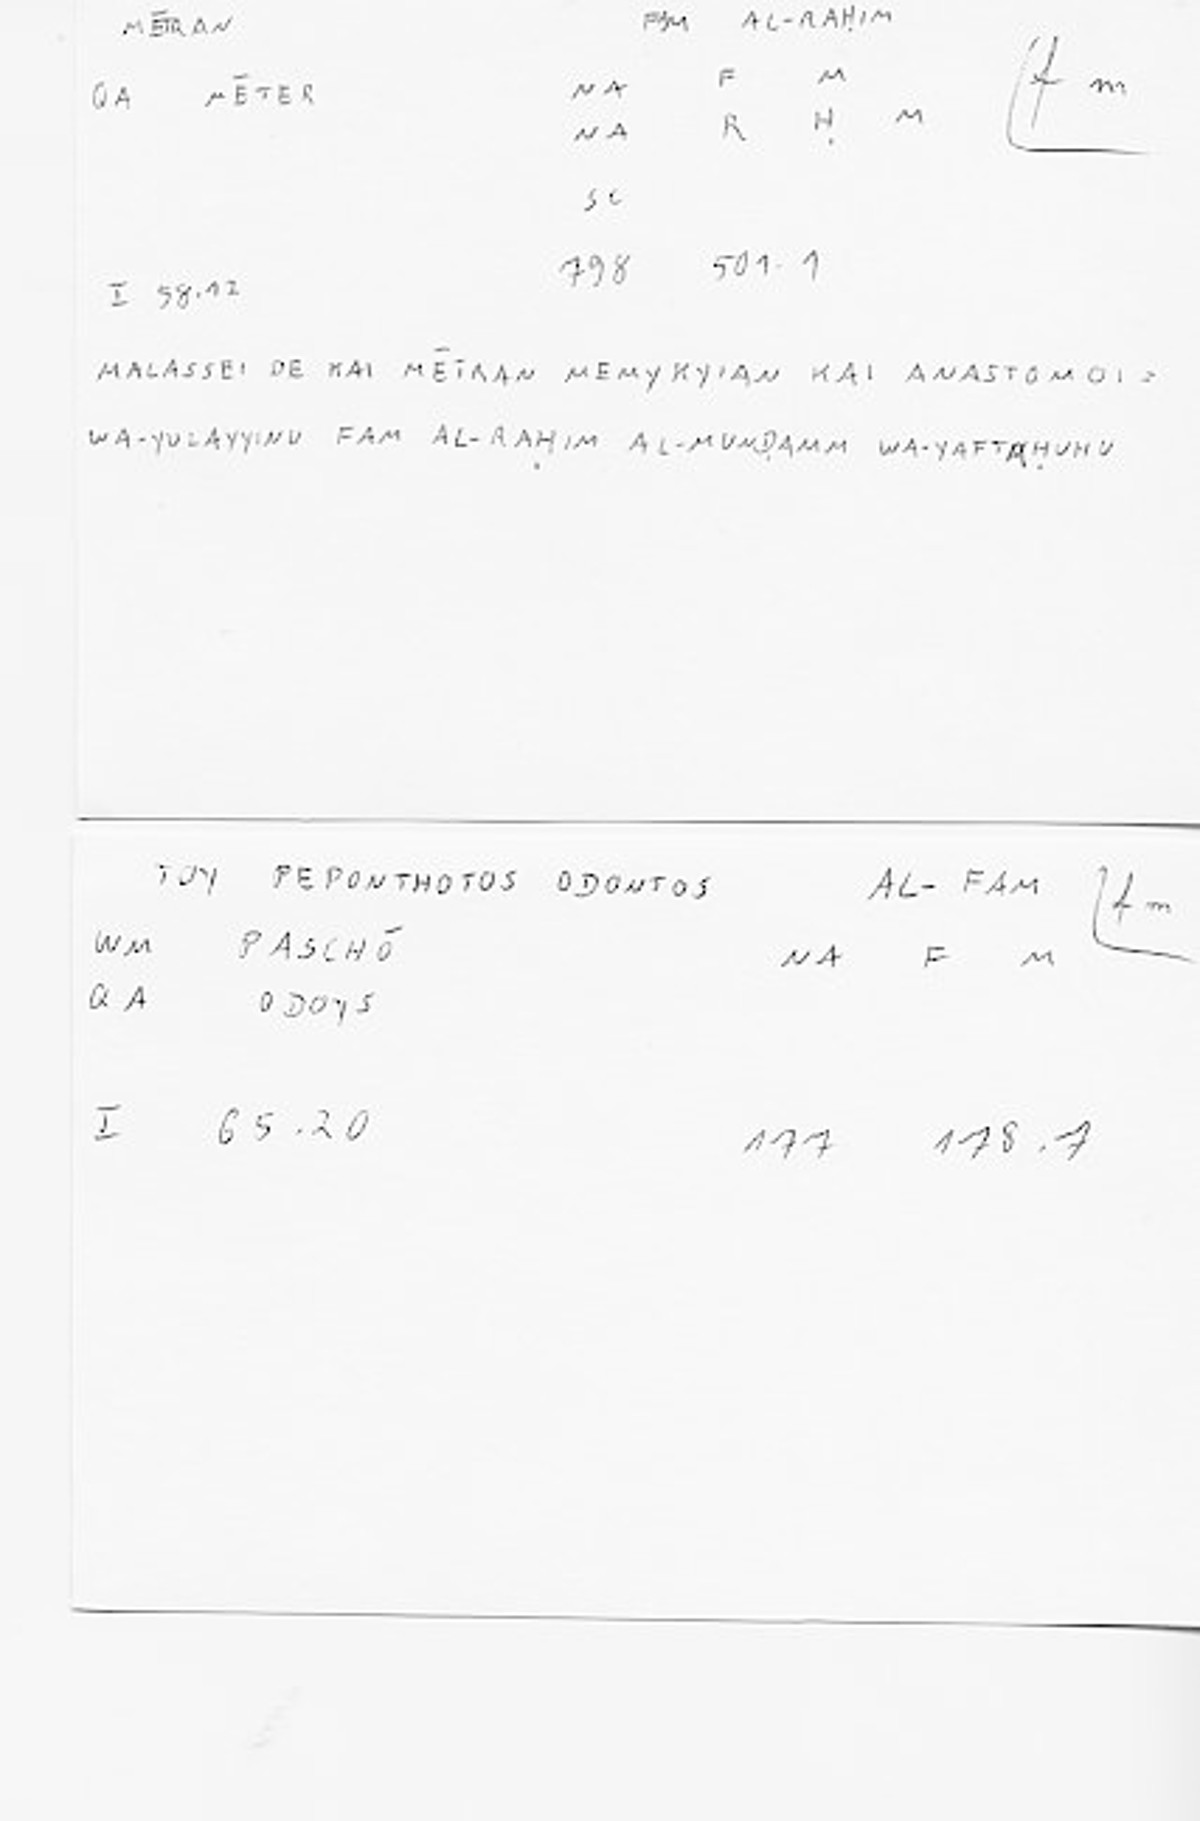 MĒTRAN FAM AL-RAḤIM
QA MĒTER NA F M f m
NA R Ḥ M
SC
798 501.1
I 58.12
MALASSEI DE KAI MĒTRAN MEMYKYIAN KAI ANASTOMOI =
WA-YULAYYINU FAM AL-RAḤIM AL-MUNḌAMM WA-YAFTAḤUHU
TOY PEPONTHOTOS ODONTOS AL-FAM f m
WM PASCHŌ NA F M
QA ODOYS
I 65.20 177 178.7